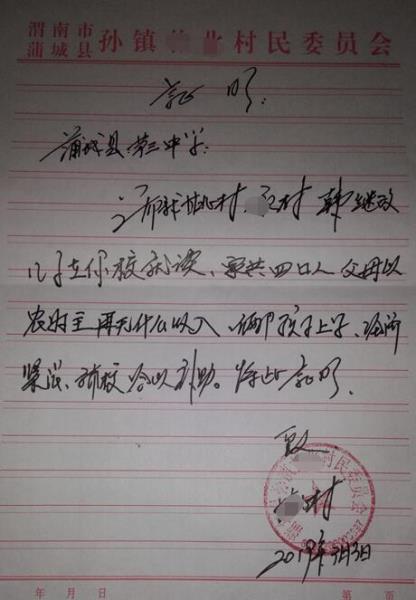 渭南市
蒲城县 孙镇 北村民委员会
证明:
蒲城县第三中学:
村, 村 韩继政
儿子在你校就读、家共四口人 父母以
农为主再无什么收入, 俩个孩子上学, 经济
紧张、请校给以补助。特此证明.
致
村民委员会
村
2019年 月3日
年 月 日 第 页